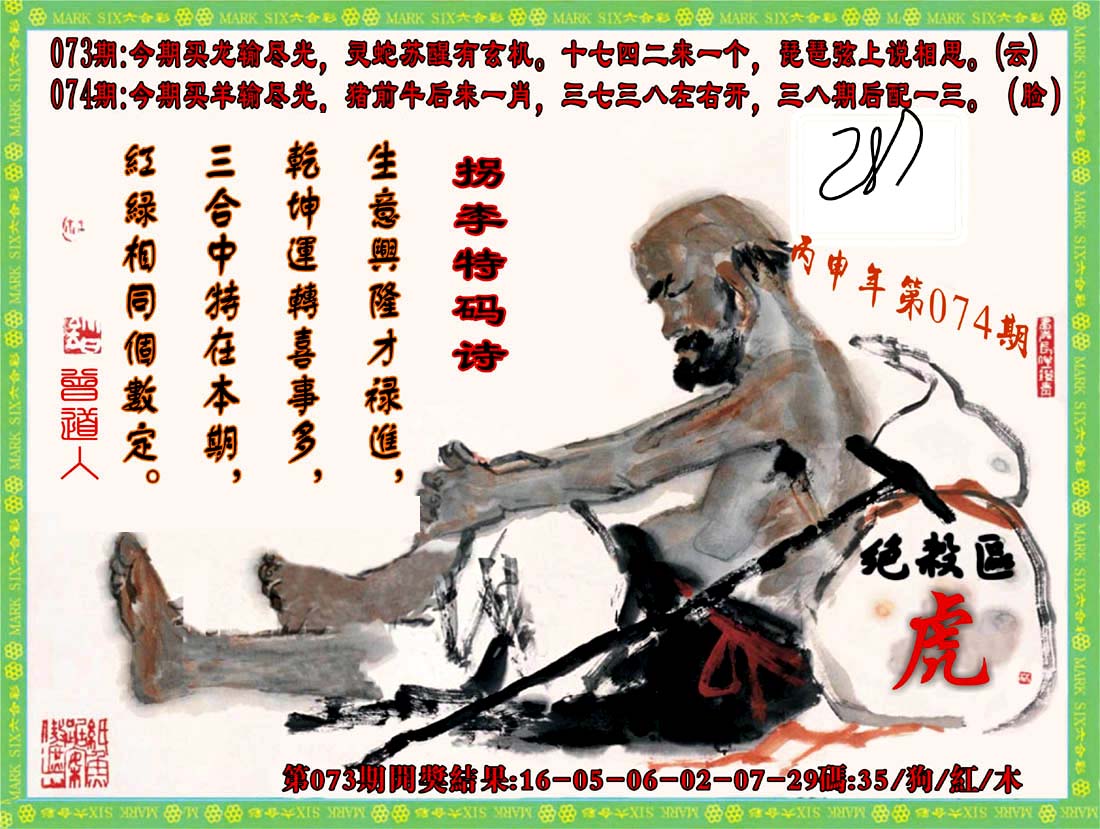 MARK SIX六合彩 MARK SIX六合彩 MARK SIX六合彩 MARK SIX六合彩 MARK SIX六合彩 MARK SIX六合彩
073期:今期买龙输尽光，灵蛇苏醒有玄机。十七四二来一个，琵琶弦上说相思。(云)
074期:今期买羊输尽光，猪前牛后来一肖，三七三八左右开，三八期后配一三。(脸)
拐李特码诗
生意興隆才禄進，
乾坤運轉喜事多，
三合中特在本期，
紅緑相同個數定。
曾道人
丙申年第074期
绝殺區
虎
第073期開獎結果:16-05-06-02-07-29碼:35/狗/紅/木